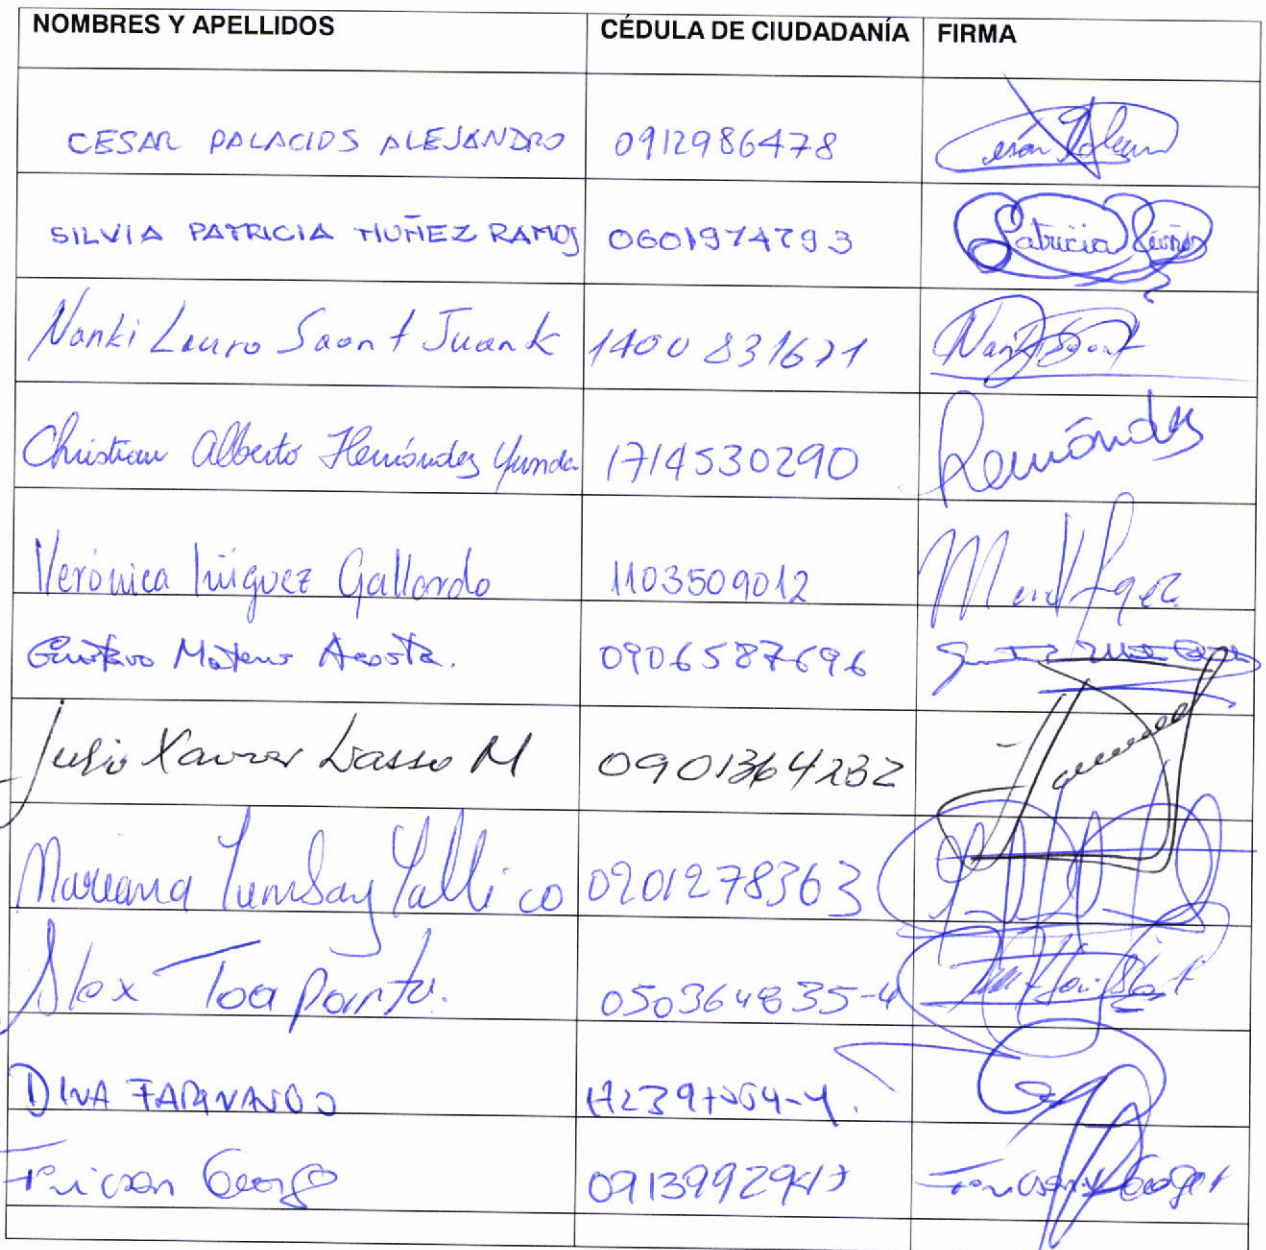 NOMBRES Y APELLIDOS CÉDULA DE CIUDADANÍA FIRMA
CESAR PALACIOS ALEJANDRO 0912986478
SILVIA PATRICIA NUÑEZ RAMOS 0601974793 Patricia Núñez
Nanki Lauro Saant Juank 1400831671
Christian Alberto Hernández Yunda 1714530290 Hernández
Verónica Iñiguez Gallardo 1103509012
Gustavo Mateus Acosta. 0906587696
Julio Xavier Lasso M 0901364232
Mariana Yumbay Yallico 0201278363
Alex Toapanta. 050364835-4
DINA FARINANGO
Ericson George